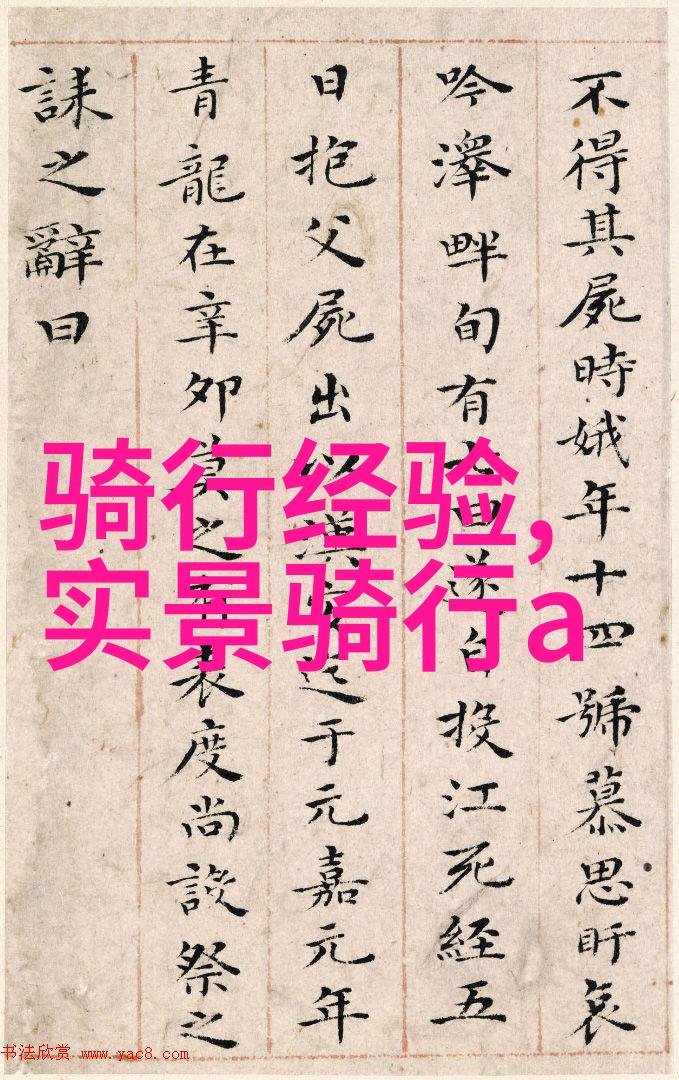 不得其屍時娥年十四號慕思盱哀
吟澤畔旬有七日遂自投江死經五
日抱父屍出以漢安迄于元嘉元年
青龍在辛卯莫之有表度尚設祭之
誄之辭曰
骑行经验,
实景骑行a
书法欣赏 www.yac8.com